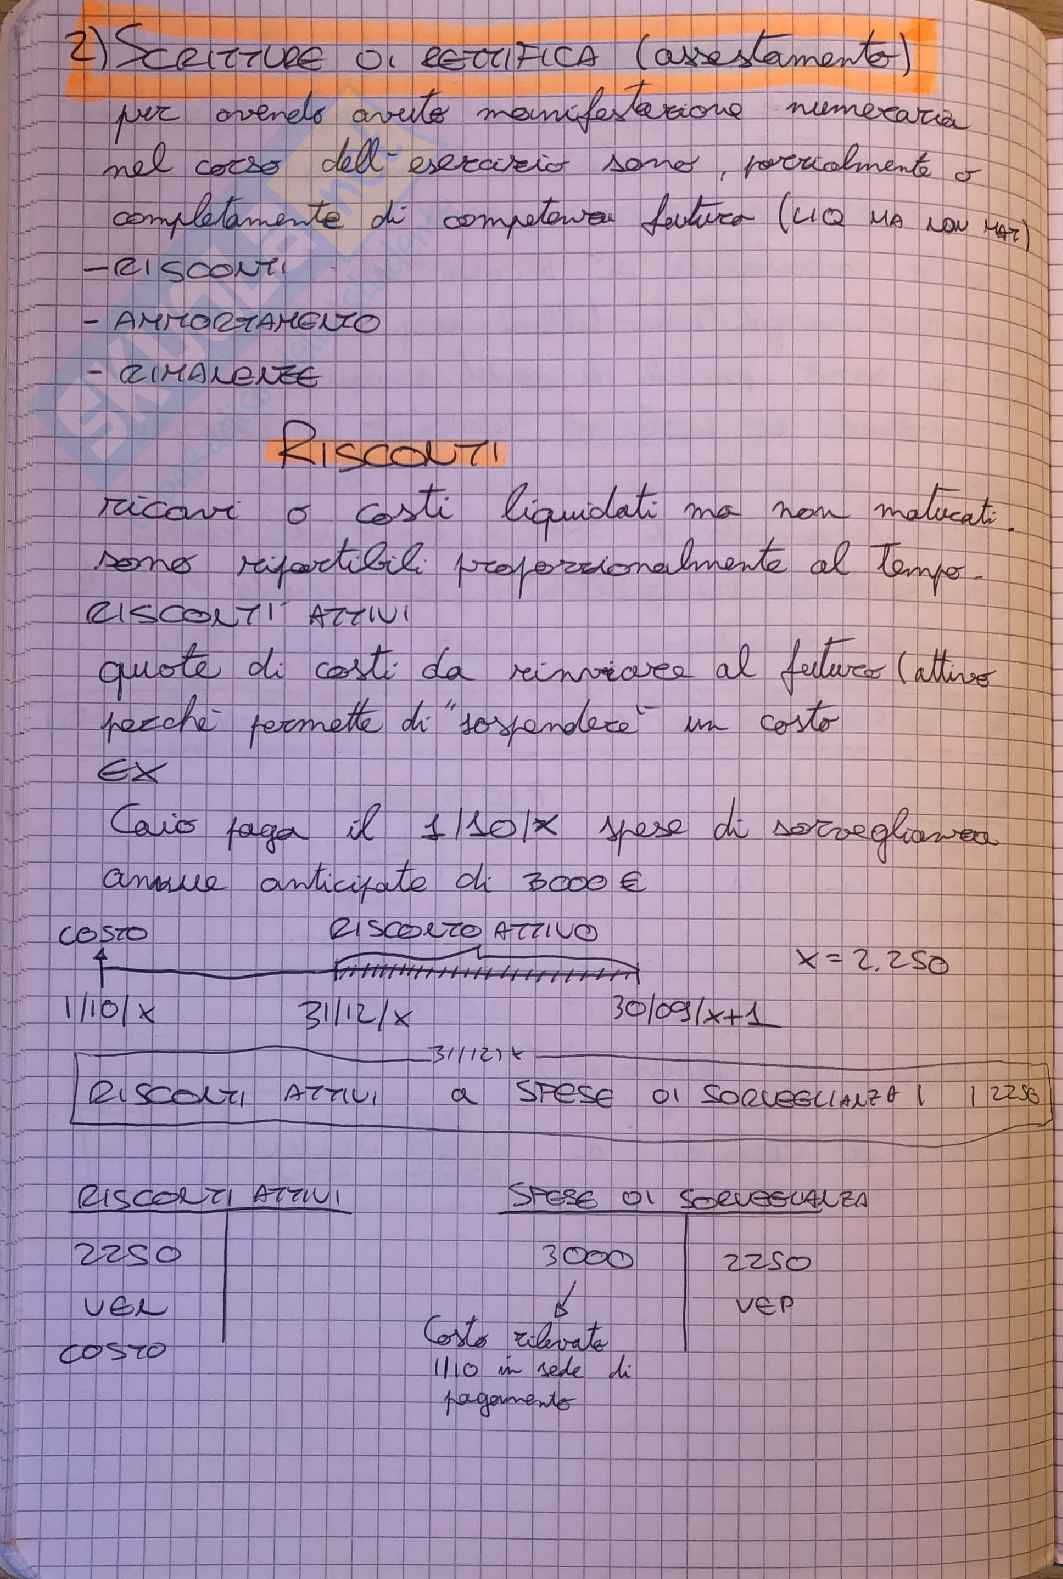 2) SCRITTURE DI RETTIFICA (assestamento)
pur avendo avuto manifestazione numeraria
nel corso dell'esercizio sono, parzialmente o
completamente di competenza futura (LIQ MA NON MAT)
- RISCONTI
- AMMORTAMENTO
- RIMANENZE
RISCONTI
ricavi o costi liquidati ma non maturati.
sono ripartibili proporzionalmente al tempo.
RISCONTI ATTIVI
quote di costi da rinviare al futuro (attivo
perché permette di "sospendere" un costo
EX
Caio paga il 1/10/x spese di sorveglianza
annue anticipate di 3000 €
COSTO RISCONTO ATTIVO
x = 2.250
1/10/x 31/12/x 30/09/x+1
31/12/x
RISCONTI ATTIVI a SPESE DI SORVEGLIANZA | | 2250
RISCONTI ATTIVI SPESE DI SORVEGLIANZA
2250 3000 2250
VEN VEP
COSTO
Costo rilevato
1/10 in sede di
pagamento
SKUOLA.net